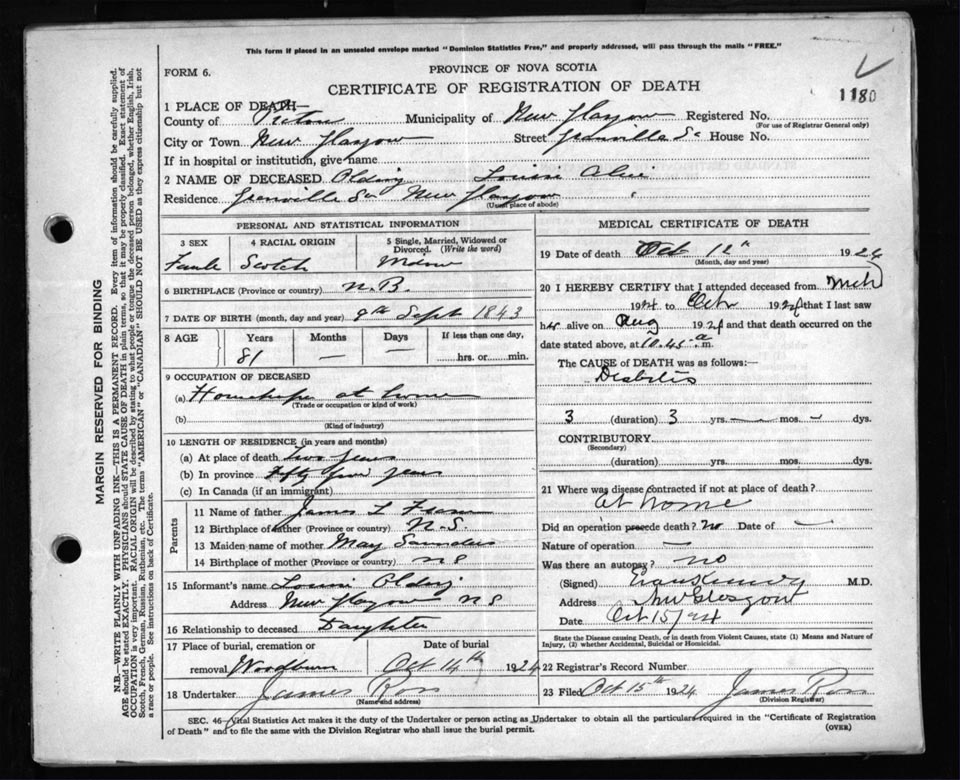 This form if placed in an unsealed envelope marked "Dominion Statistics Free," and properly addressed, will pass through the mails "FREE."
FORM 6.
PROVINCE OF NOVA SCOTIA
CERTIFICATE OF REGISTRATION OF DEATH
1180
1 PLACE OF DEATH—
County of Pictou Municipality of New Glasgow Registered No.
(For use of Registrar General only)
City or Town New Glasgow Street Granville St House No.
If in hospital or institution, give name
2 NAME OF DECEASED Olding Louisi
Residence Granville St New Glasgow
(Usual place of abode)
PERSONAL AND STATISTICAL INFORMATION
3 SEX 4 RACIAL ORIGIN 5 Single, Married, Widowed or Divorced. (Write the word)
Female Scotch Widow
6 BIRTHPLACE (Province or country) N.B.
7 DATE OF BIRTH (month, day and year) 9th Sept 1843
8 AGE Years Months Days If less than one day,
81 — — hrs. or min.
9 OCCUPATION OF DECEASED
(a) at home
(Trade or occupation or kind of work)
(b)
(Kind of industry)
10 LENGTH OF RESIDENCE (in years and months)
(a) At place of death Two years
(b) In province Fifty years
(c) In Canada (if an immigrant)
Parents
11 Name of father James L Fraser
12 Birthplace of father (Province or country) N.S.
13 Maiden name of mother May Saunders
14 Birthplace of mother (Province or country) NS
15 Informant's name Olding
Address New Glasgow NS
16 Relationship to deceased Daughter
17 Place of burial, cremation or removal Date of burial
Woodburn Oct 14th 1924
18 Undertaker James Ross
(Name and address)
MEDICAL CERTIFICATE OF DEATH
19 Date of death Oct 12th 1924
(Month, day and year)
20 I HEREBY CERTIFY that I attended deceased from
1924 to Oct 1924 that I last saw
her alive on Aug 1924 and that death occurred on
date stated above, at 10.45 a m.
The CAUSE of DEATH was as follows:—
Diabetis
3 (duration) 3 yrs. — mos. — dys.
CONTRIBUTORY
(Secondary)
(duration) yrs. mos. dys.
21 Where was disease contracted if not at place of death?
at home
Did an operation precede death? no Date of —
Nature of operation —
Was there an autopsy? no
(Signed) M.D.
Address New Glasgow
Date Oct 15/24
State the Disease causing Death, or in death from Violent Causes, state (1) Means and Nature of
Injury, (2) whether Accidental, Suicidal or Homicidal.
22 Registrar's Record Number
23 Filed Oct 15th 1924 James Ross
(Division Registrar)
SEC. 46—Vital Statistics Act makes it the duty of the Undertaker or person acting as Undertaker to obtain all the particulars required in the "Certificate of Registration
of Death" and to file the same with the Division Registrar who shall issue the burial permit.
(OVER)
MARGIN RESERVED FOR BINDING
N.B.—WRITE PLAINLY WITH UNFADING INK—THIS IS A PERMANENT RECORD. Every item of information should be carefully supplied.
AGE should be stated EXACTLY. PHYSICIANS should STATE CAUSE OF DEATH in plain terms, so that it may be properly classified. Exact statement of
OCCUPATION is very important. RACIAL ORIGIN will be described by stating to what people or tongue the deceased person belonged, whether English, Irish,
Scotch, French, German, Russian, Ruthenian, etc. The terms "AMERICAN" or "CANADIAN" SHOULD NOT BE USED as they express citizenship but not
a race or people. See instructions on back of Certificate.